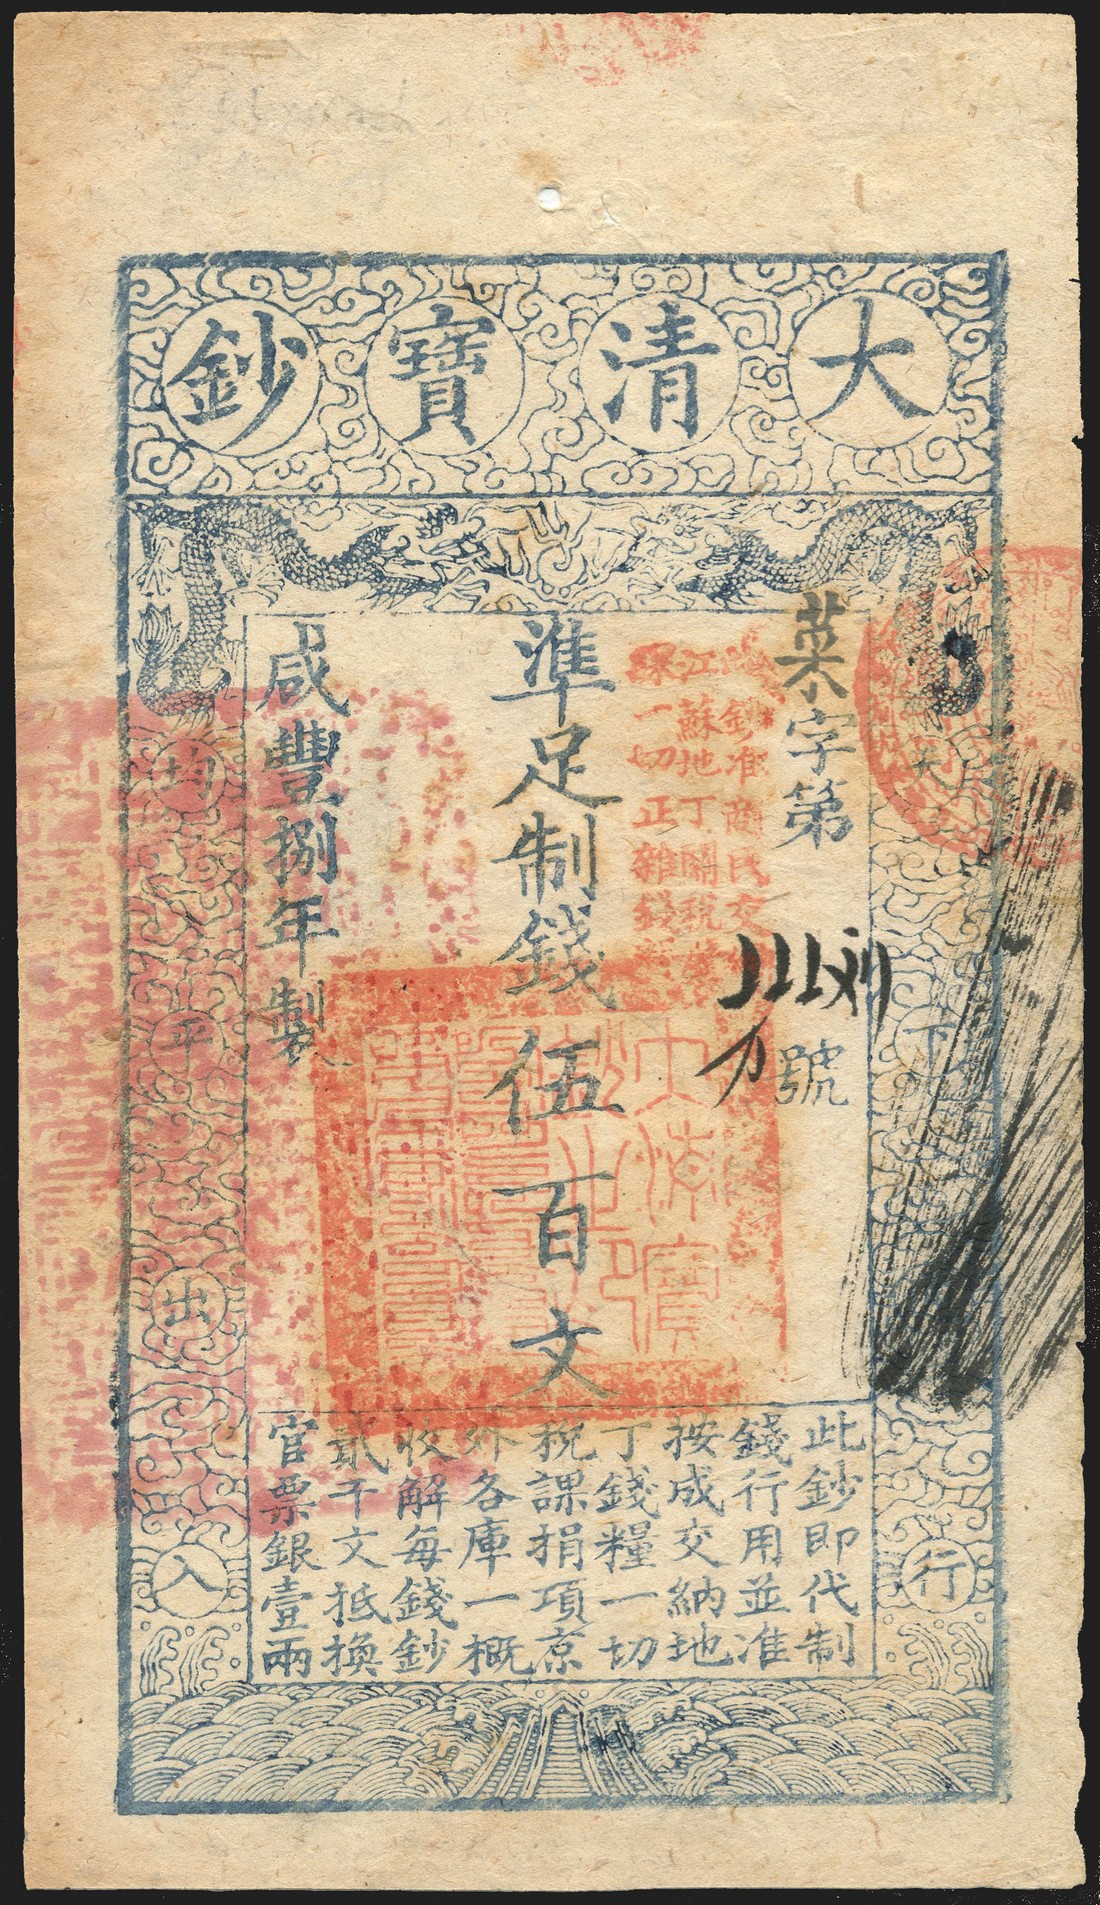 大清寶鈔
天下
行
均平出入
菜字第
號
準足制錢伍百文
咸豐捌年製
鈔准商民交
江蘇地丁關稅
課一切正雜錢
大清寶
鈔之印
此鈔即代制
錢行用並准
按成交納地
丁錢糧一切
稅課捐項京
外各庫一概
收解每錢鈔
貳千文抵換
官票銀壹兩